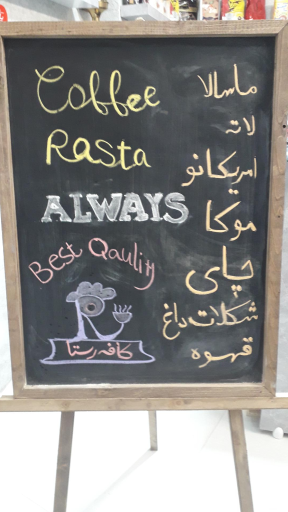 Coffee
Rasta
ALWAYS
Best Qaulity
کافه رستا
ماسالا
لاته
امریکانو
موکا
چای
شکلات داغ
قهوه